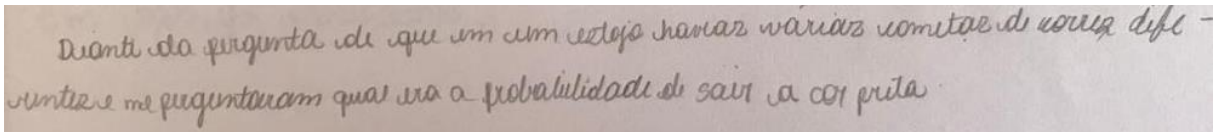 Diante da pergunta de que em um estojo havias várias cometas de cores dife-
rentes e me perguntaram qual era a probabilidade de sair a cor preta.